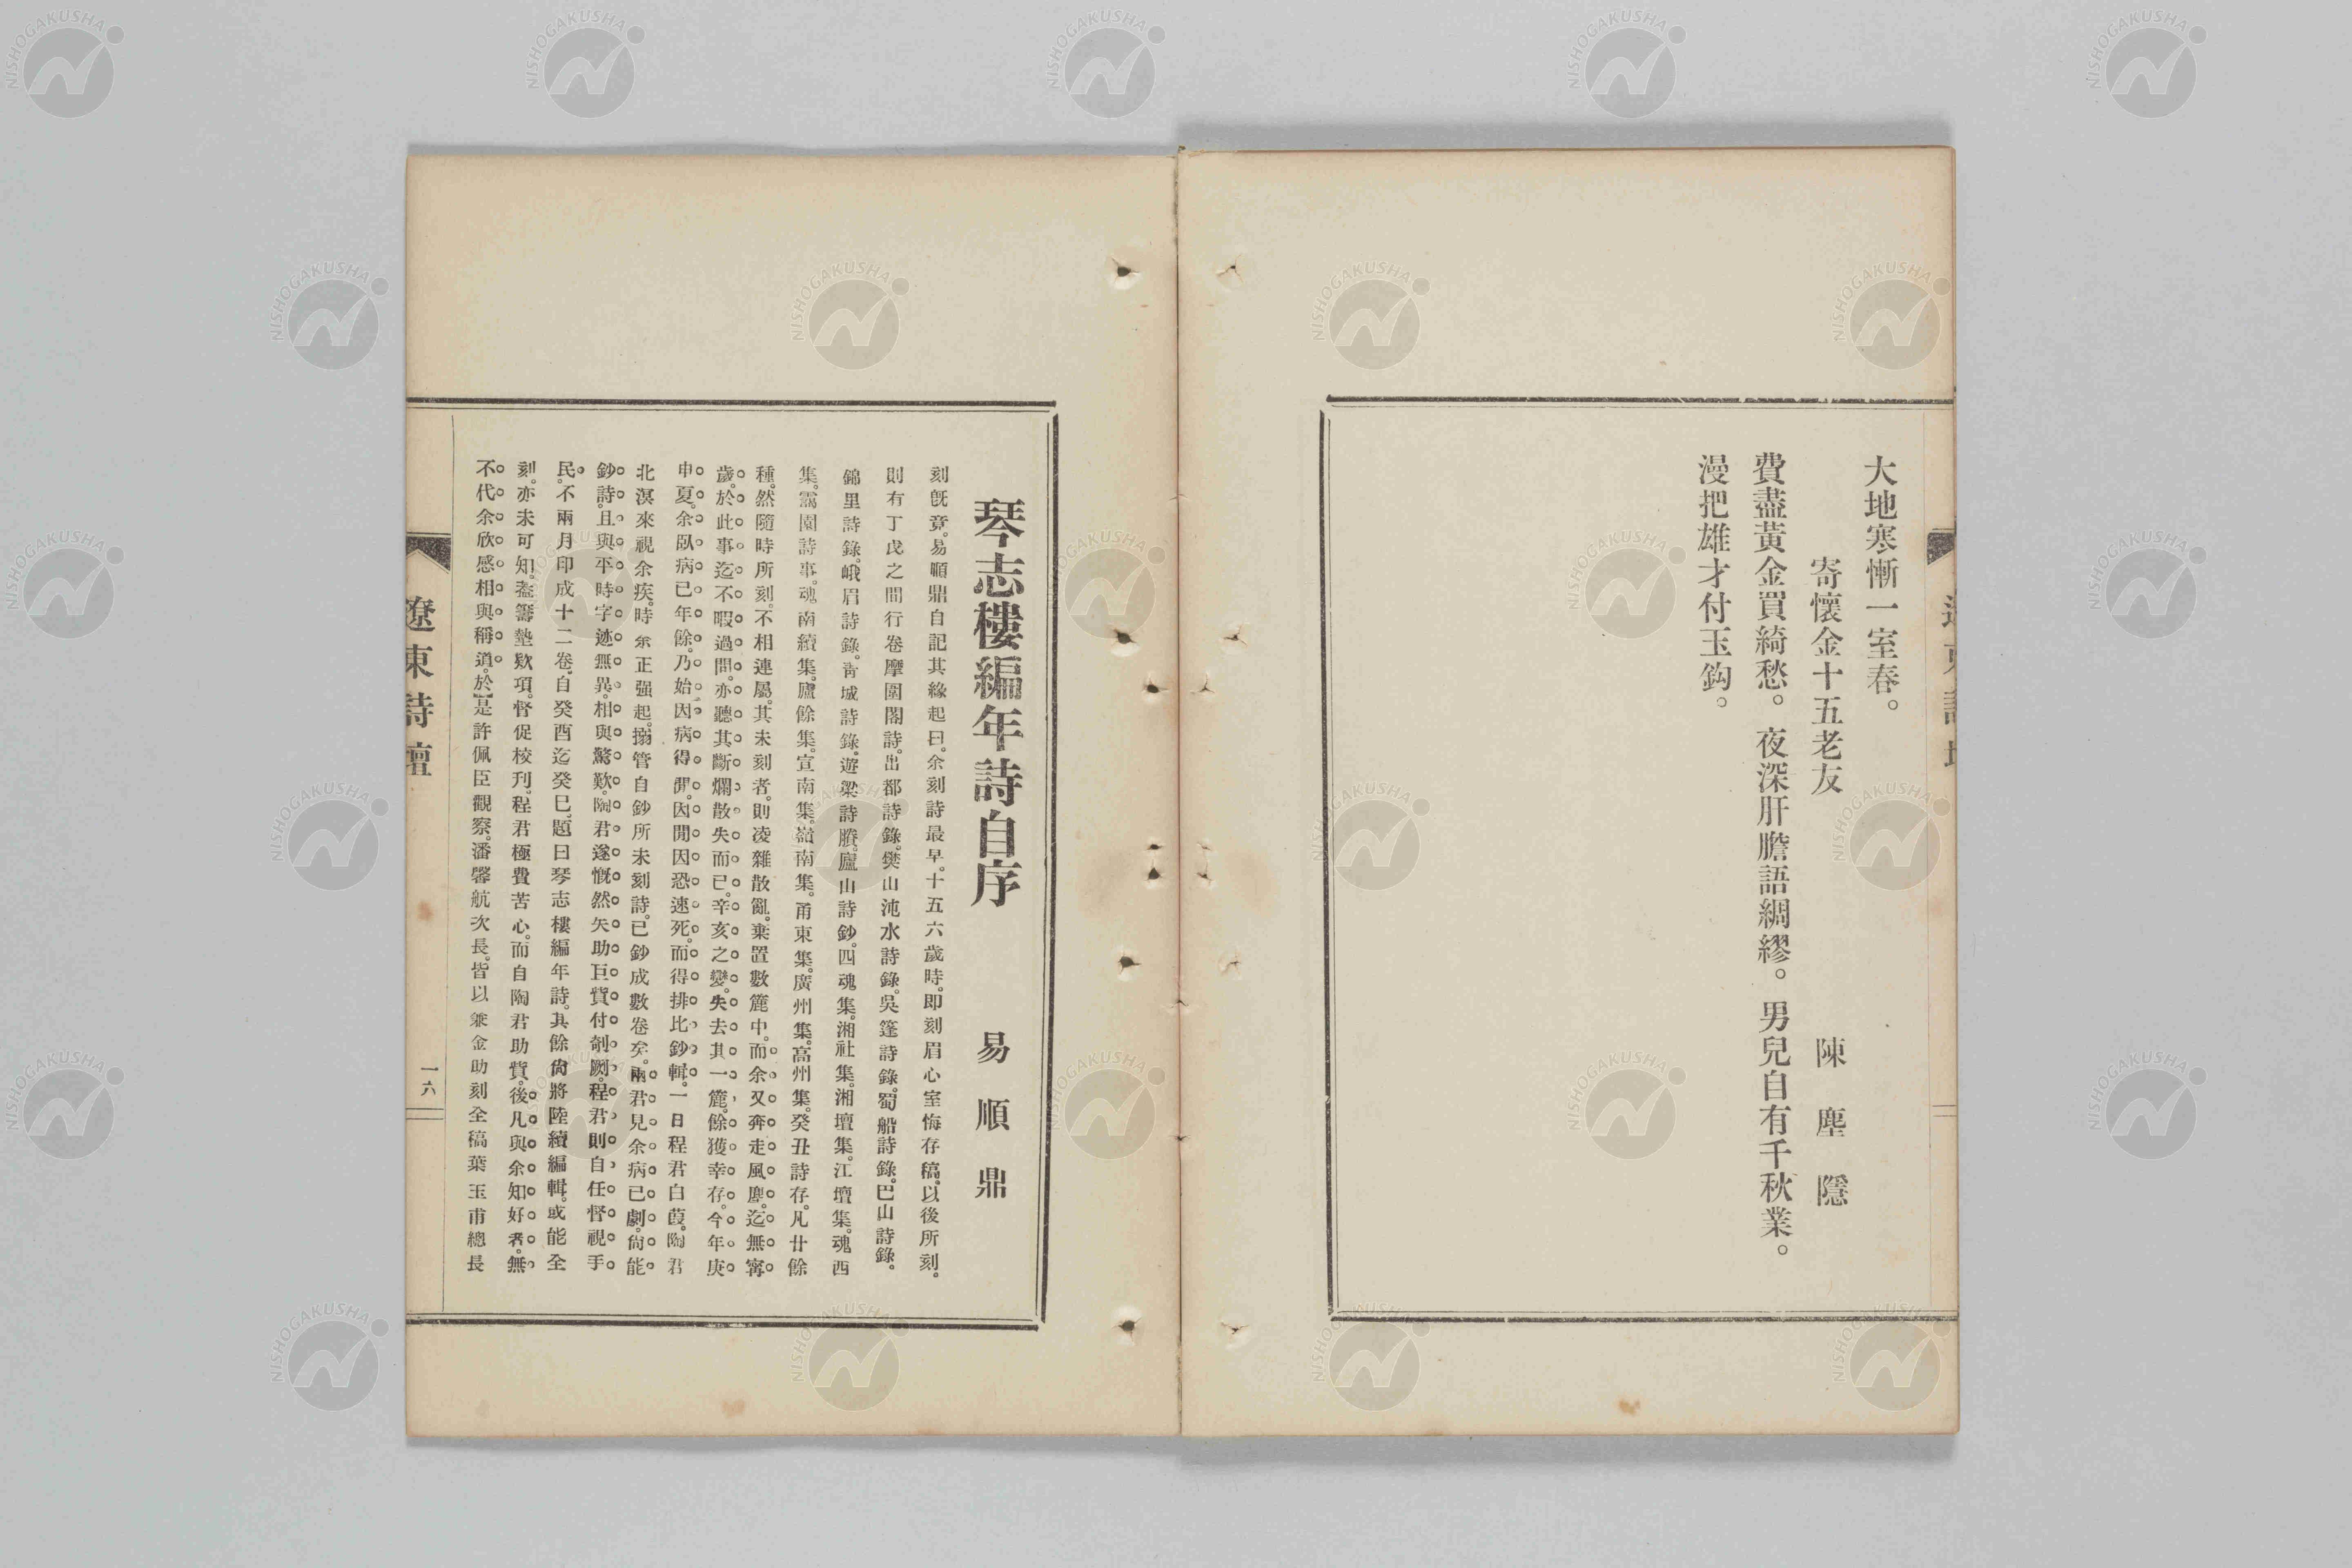 大地寒慚一室春。
寄懷金十五老友 陳塵隱
費盡黃金買綺愁。夜深肝膽語綢繆。男兒自有千秋業。
漫把雄才付玉鈎。
琴志樓編年詩自序 易順鼎
刻既竟。易順鼎自記其緣起曰。余刻詩最早。十五六歲時。即刻眉心室悔存稿。以後所刻。
則有丁戊之間行卷摩圍閣詩。出都詩錄。樊山沌水詩錄。吳篷詩錄。蜀船詩錄。巴山詩錄。
錦里詩錄。峨眉詩錄。青城詩錄。遊梁詩賸。廬山詩鈔。四魂集。湘社集。湘壇集。江壇集。魂西
集。霭園詩事。魂南續集。廬餘集。宣南集。嶺南集。甬東集。廣州集。高州集。癸丑詩存。凡廿餘
種。然隨時所刻。不相連屬。其未刻者。則凌雜散亂。棄置數簏中。而余又奔走風塵。迄無寗
歲。於此事迄不暇過問。亦聽其斷爛散失而已。辛亥之變。失去其一簏。餘獲幸存。今年庚
申夏。余臥病已年餘。乃始因病得閒。因閒因恐速死。而得排比鈔輯。一日程君白葭。陶君
北溟來視余疾。時余正强起。搦管自鈔所未刻詩。已鈔成數卷矣。兩君見余病已劇。尙能
鈔詩。且與平時字迹無異。相與驚歎。陶君遂慨然矢助巨貲付剞劂。程君則自任督視手
民。不兩月印成十二卷。自癸酉迄癸巳。題曰琴志樓編年詩。其餘尙將陸續編輯。或能全
刻。亦未可知。盍籌墊欵項。督促校刋。程君極費苦心。而自陶君助貲。後凡與余知好者。無
不代余欣感相與稱道。於是許佩臣觀察。潘馨航次長。皆以兼金助刻全稿葉玉甫總長
遼東詩壇
一六
NISHOGAKUSHA